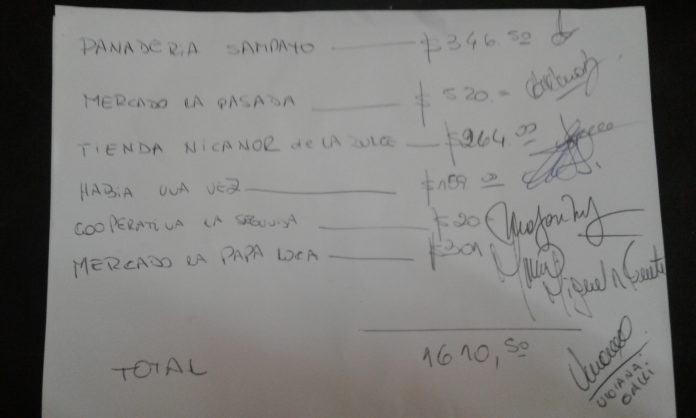 PANADERIA SAMPAYO $346.50
MERCADO LA PASADA $520.=
TIENDA NICANOR de LA DULCE $264.00
HABIA UNA VEZ $159.00
COOPERATIVA LA SEGUNDA $20
MERCADO LA PAPA LOCA $301
Miguel A
1610,50
TOTAL
VIVIANA
GALLI